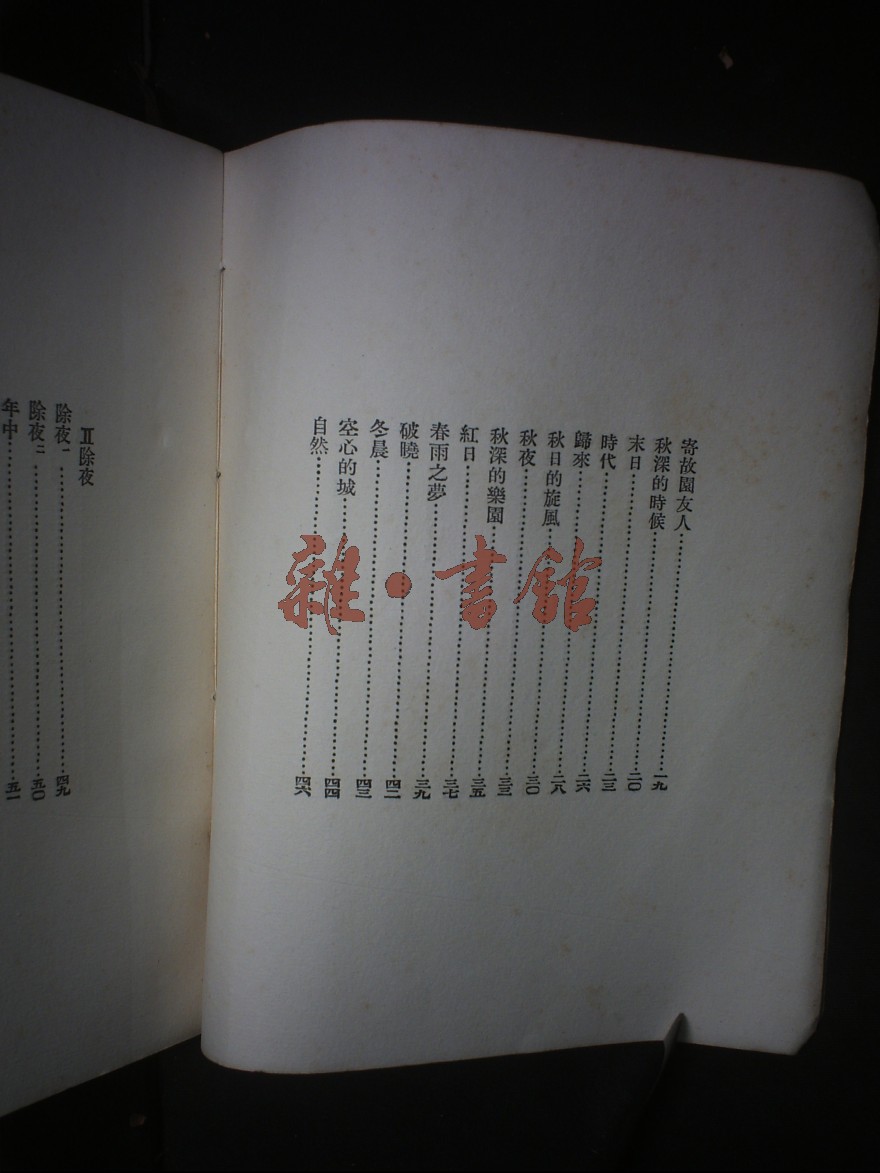 寄故園友人……………………一九
秋深的時候……………………二〇
末日……………………二三
時代……………………二六
歸來……………………二八
秋日的旋風……………………三〇
秋夜……………………三三
秋深的樂園……………………三五
紅日……………………三七
春雨之夢……………………三九
破曉……………………四二
冬晨……………………四三
空心的城……………………四四
自然……………………四六
II除夜
除夜一……………………四九
除夜二……………………五〇
年中……………………五一
雜·書館